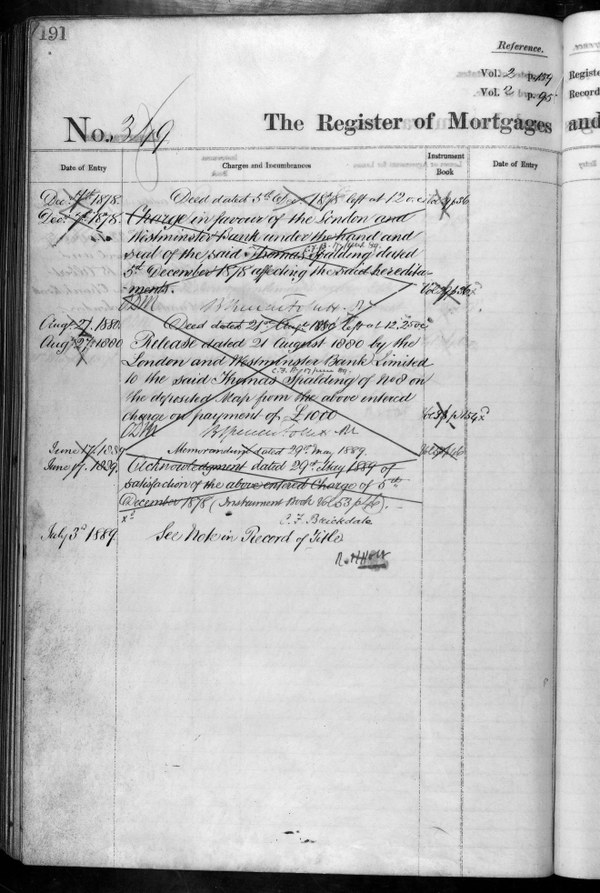 191
Reference.
Vol. 2 p. 159
Vol. 2 p. 95
Registe
Record
No. 349
The Register of Mortgages and
Date of Entry
Charges and Incumbrances
Instrument Book
Date of Entry
Dec. 7th 1878.
Deed dated 5th Dec. 1878 left at 12 o'c
Dec. 7th 1878.
Charge in favour of the London and
Westminster Bank under the hand and
seal of the said Thomas Spalding dated
5th December 1878 affecting the said heredita-
ments.
Augt 27. 1880
Deed dated 21st Augt 1880 left at 12.25 o'c
Augt 27th 1880
Release dated 21 August 1880 by the
London and Westminster Bank Limited
to the said Thomas Spalding of No 8 on
the deposited Map from the above entered
charge on payment of £1000
June 17. 1889
Memorandum dated 29th May 1889.
June 17. 1889.
Acknowledgment dated 29th May 1889 of
satisfaction of the above entered Charge of 5th
December 1878 (Instrument Book Vol. 53
C. F. Brickdale
July 3d 1889.
See Note in Record of Title